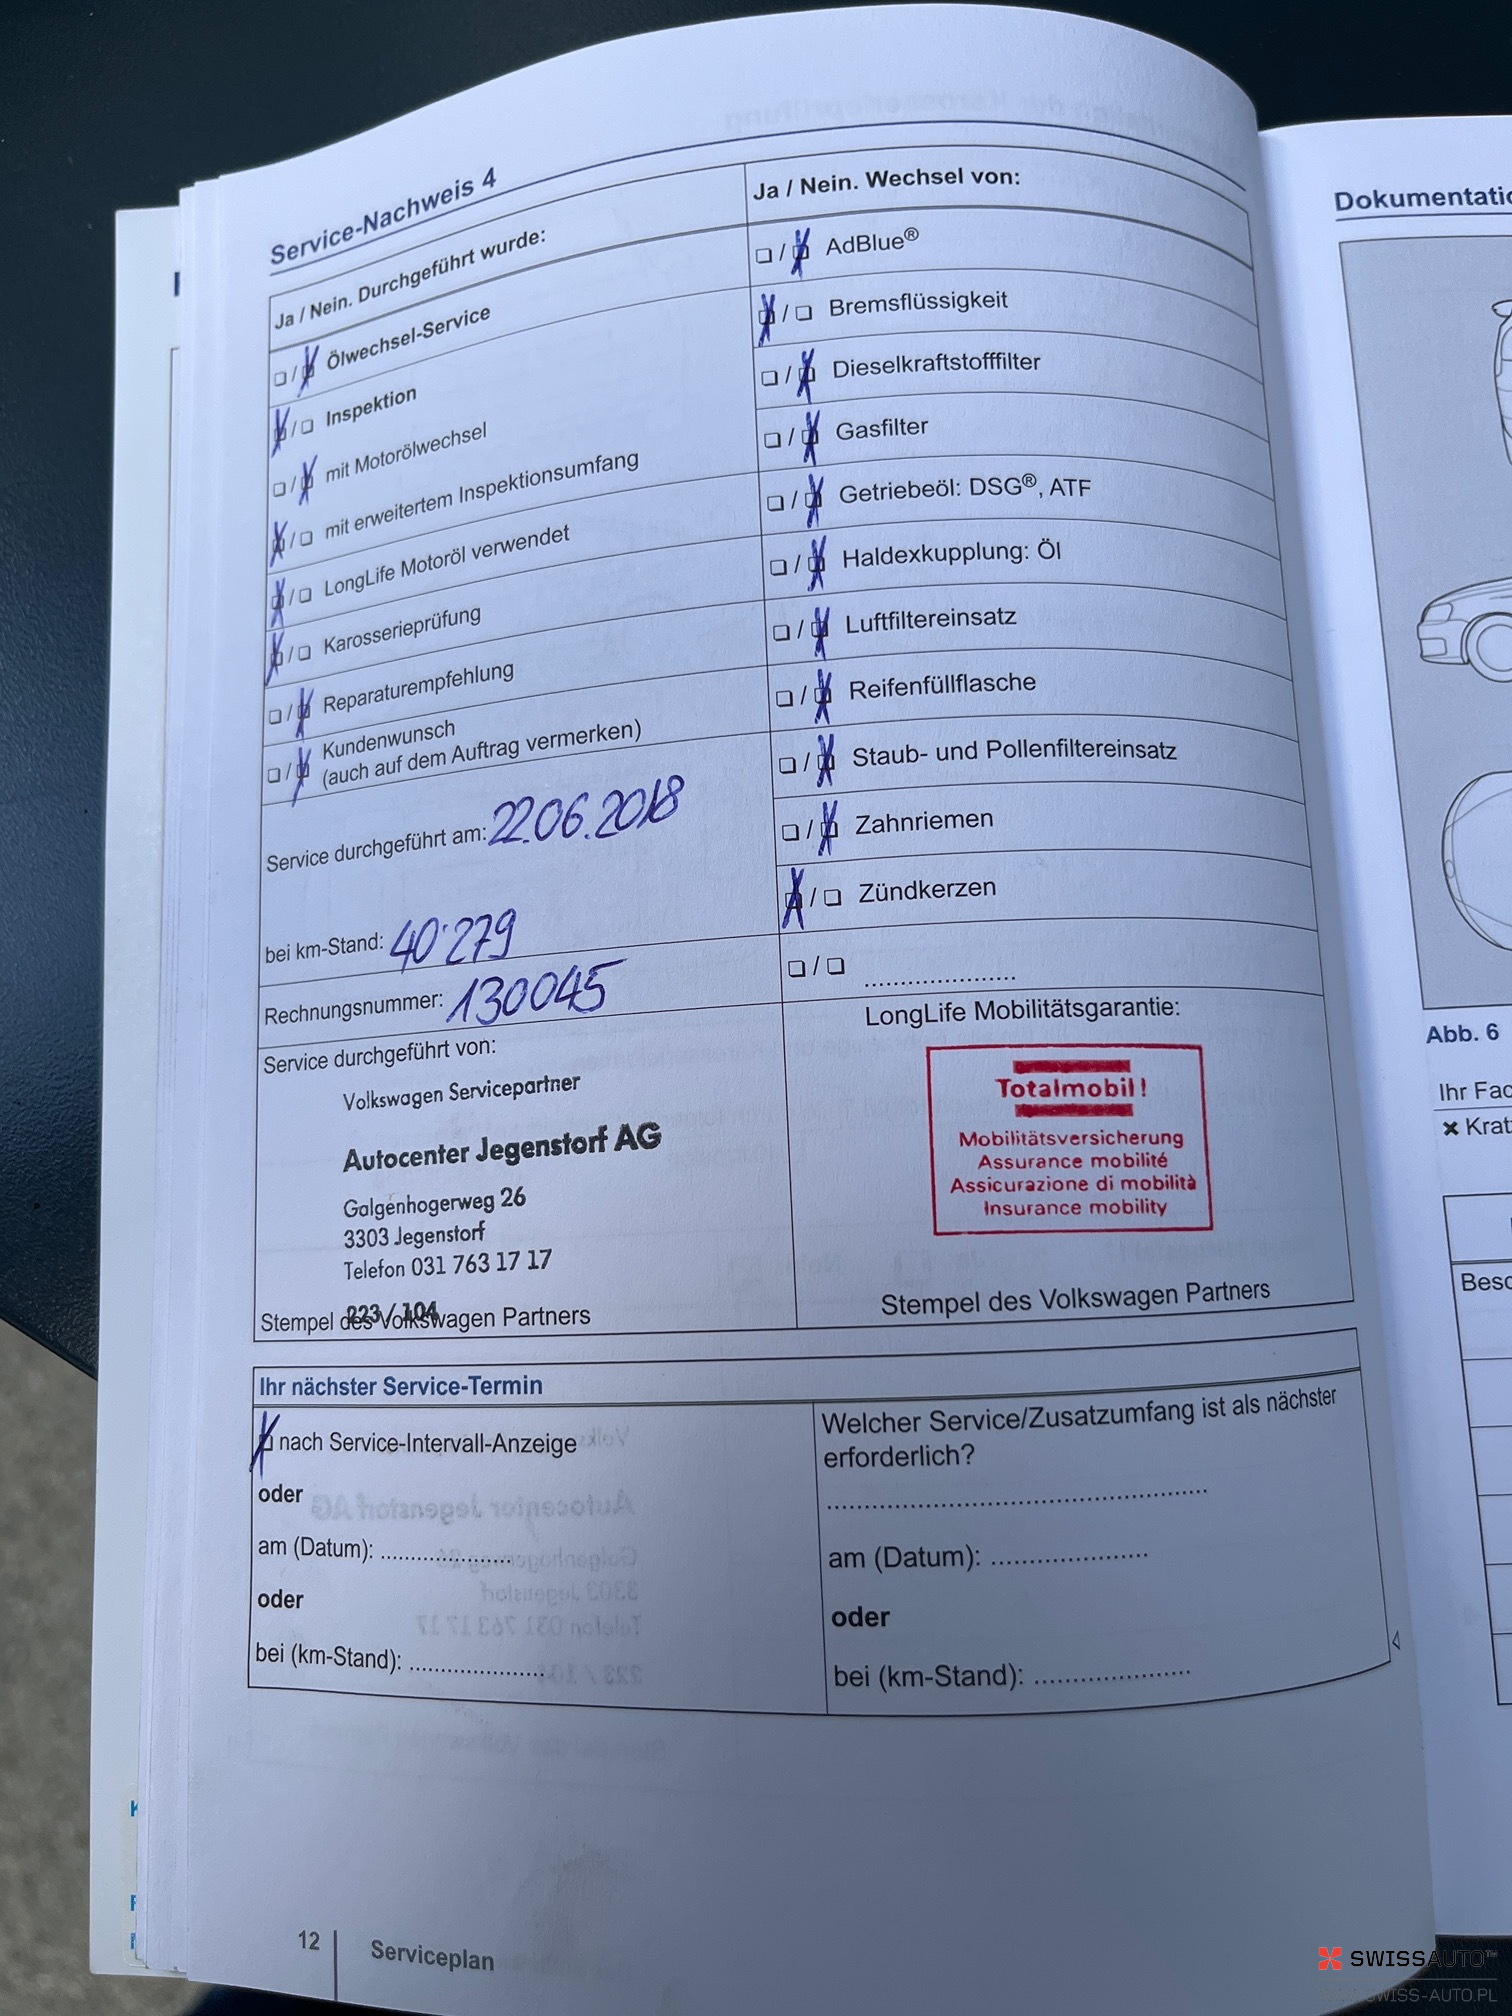 Service-Nachweis 4
Ja / Nein. Durchgeführt wurde:
☐ / ☒ Ölwechsel-Service
☒ / ☐ Inspektion
☐ / ☒ mit Motorölwechsel
☒ / ☐ mit erweitertem Inspektionsumfang
☒ / ☐ LongLife Motoröl verwendet
☒ / ☐ Karosserieprüfung
☐ / ☒ Reparaturempfehlung
☐ / ☒ Kundenwunsch
(auch auf dem Auftrag vermerken)
Service durchgeführt am: 22.06.2018
bei km-Stand: 40'279
Rechnungsnummer: 130045
Service durchgeführt von:
Volkswagen Servicepartner
Autocenter Jegenstorf AG
Galgenhogerweg 26
3303 Jegenstorf
Telefon 031 763 17 17
223 / 104
Stempel des Volkswagen Partners
Ja / Nein. Wechsel von:
☐ / ☒ AdBlue®
☒ / ☐ Bremsflüssigkeit
☐ / ☒ Dieselkraftstofffilter
☐ / ☒ Gasfilter
☐ / ☒ Getriebeöl: DSG®, ATF
☐ / ☒ Haldexkupplung: Öl
☐ / ☒ Luftfiltereinsatz
☐ / ☒ Reifenfüllflasche
☐ / ☒ Staub- und Pollenfiltereinsatz
☐ / ☒ Zahnriemen
☒ / ☐ Zündkerzen
☐ / ☐ ....................
LongLife Mobilitätsgarantie:
Totalmobil!
Mobilitätsversicherung
Assurance mobilité
Assicurazione di mobilità
Insurance mobility
Stempel des Volkswagen Partners
Ihr nächster Service-Termin
☒ nach Service-Intervall-Anzeige
oder
am (Datum): ....................
oder
bei (km-Stand): ....................
Welcher Service/Zusatzumfang ist als nächster
erforderlich?
..................................................
am (Datum): ....................
oder
bei (km-Stand): ....................
12 Serviceplan
Abb. 6
SWISSAUTO™
SWISS-AUTO.PL